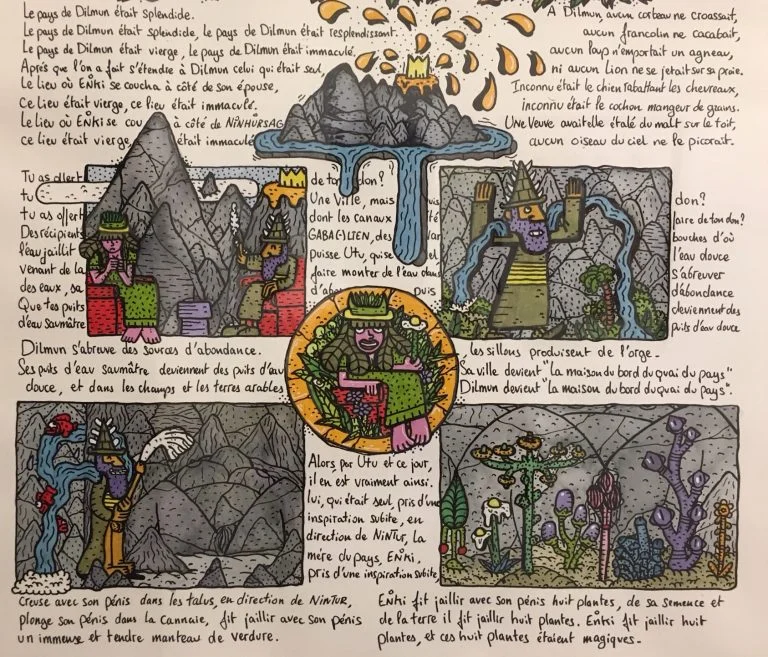 Le pays de Dilmun était splendide.
Le pays de Dilmun était splendide, le pays de Dilmun était resplendissant.
Le pays de Dilmun était vierge, le pays de Dilmun était immaculé.
Après que l'on a fait s'étendre à Dilmun celui qui était seul,
Le lieu où Enki se coucha à côté de son épouse,
Ce lieu était vierge, ce lieu était immaculé.
Le lieu où Enki se cou à côté de NINHURSAG
ce lieu était vierge, était immaculé
A Dilmun aucun corbeau ne croassait,
aucun francolin ne cacabait,
aucun loup n'emportait un agneau,
ni aucun Lion ne se jetait sur sa proie.
Inconnu était le chien rabattant les chevreaux,
inconnu était le cochon mangeur de grains.
Une Veuve avait elle étalé du malt sur le toit,
aucun oiseau du ciel ne le picorait.
Tu as offert
tu
tu as offert
Des récipients
l'eau jaillit
venant de la
des eaux, sa
Que tes puits
d'eau saumâtre
de ton don?
Une Ville, mais
dont les canaux
GABA(-)LIEN, des
puisse Utu, qui se
faire monter de l'eau dans
puis
don?
faire de ton don?
bouches d'où
l'eau douce
s'abreuver
d'abondance
deviennent des
puits d'eau douce
Dilmun s'abreuve des sources d'abondance.
Ses puits d'eau saumâtre deviennent des puits d'eau
douce, et dans les champs et les terres arables
, les sillons produisent de l'orge.
Sa ville devient "la maison du bord du quai du pays".
Dilmun devient "la maison du bord du quai du pays".
Alors par Utu et ce jour,
il en est vraiment ainsi.
lui, qui était seul, pris d'une
inspiration subite, en
direction de NINTUR, la
mère du pays, ENKI,
pris d'une inspiration subite
creuse avec son pénis dans les talus, en direction de NINTUR,
plonge son pénis dans la Cannaie, fit jaillir avec son pénis
un immense et tendre manteau de verdure.
Enki fit jaillir avec son pénis huit plantes, de sa semence et
de la terre il fit jaillir huit plantes. Enki fit jaillir huit
plantes, et ces huit plantes étaient magiques.